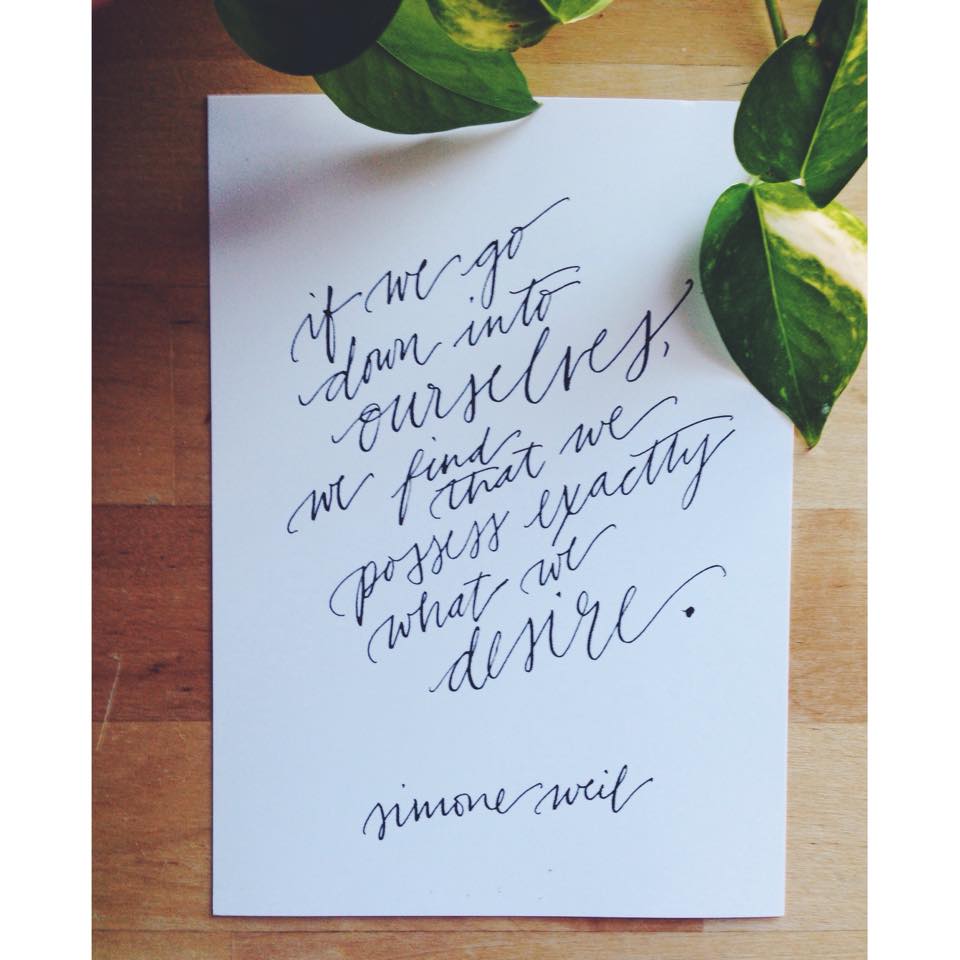 if we go
down into
ourselves,
we find
that we
possess exactly
what we
desire.
simone weil